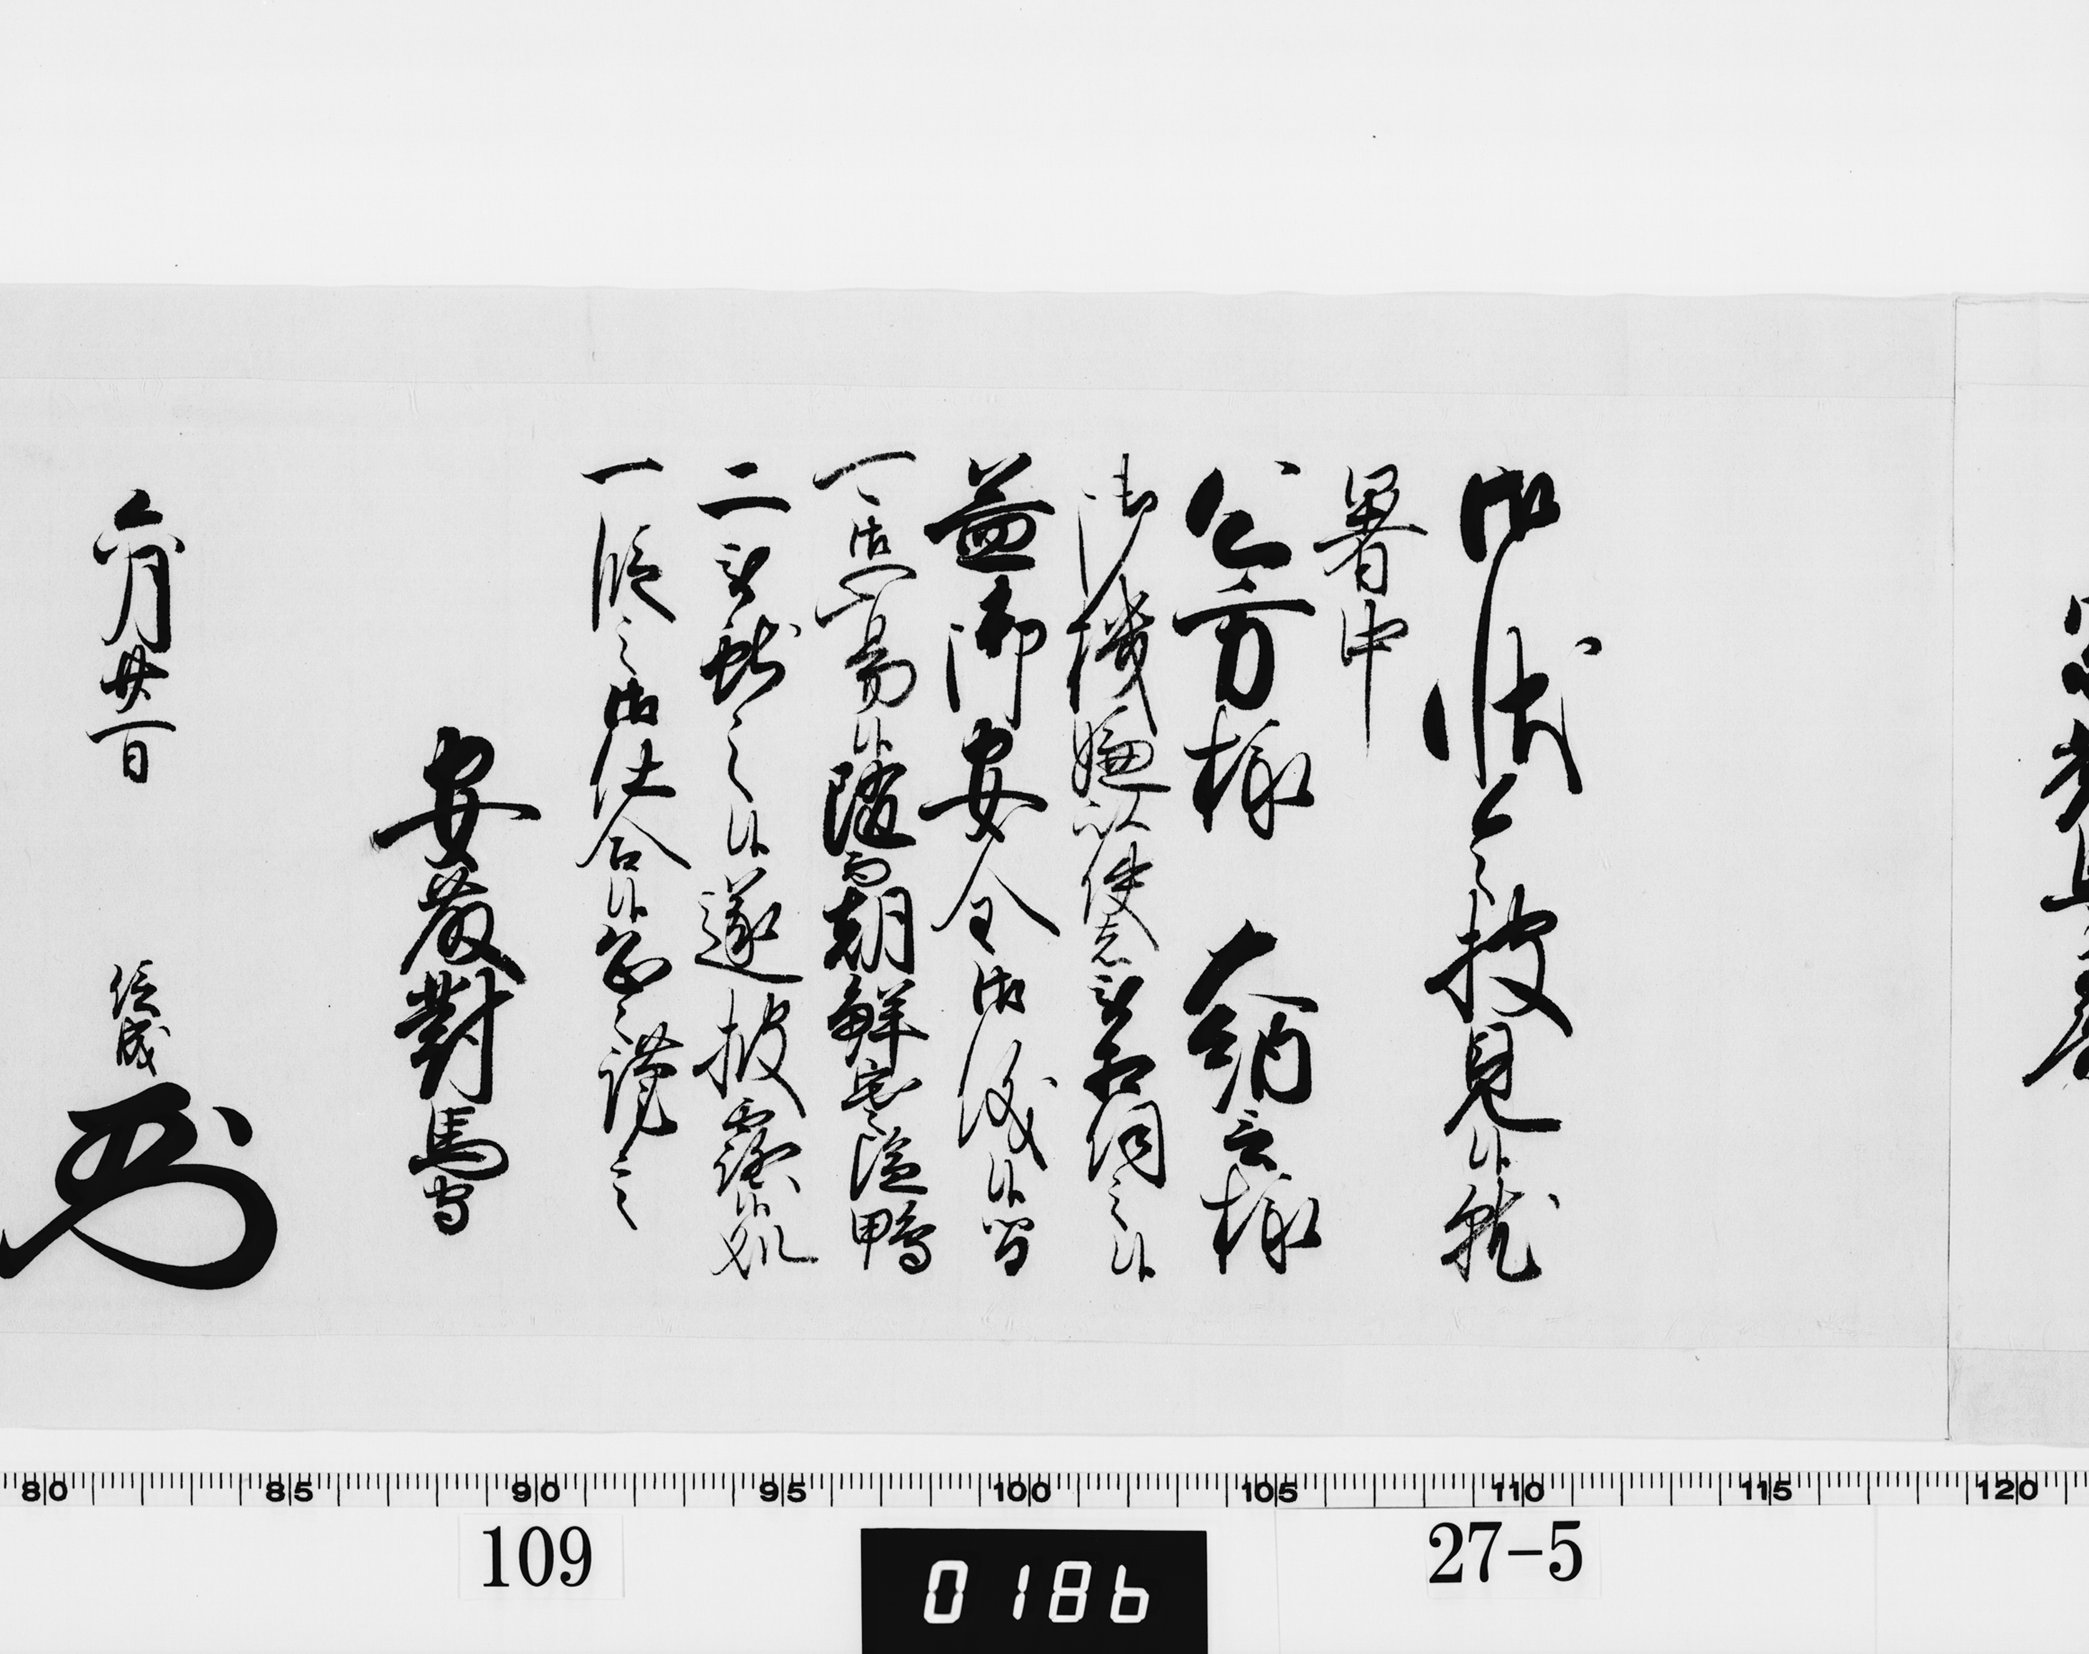 御状令披見候就
暑中
公方様 大納言様
御機嫌以使者被相伺之候
益御安全御儀候間
可御心易候随而朝鮮
二被献之候遂披露候処
一段之御仕合候恐々謹言
安藤對馬守
六月廿一日 信成
80 85 90 95 100 105 110 115 120
109 0186 27-5